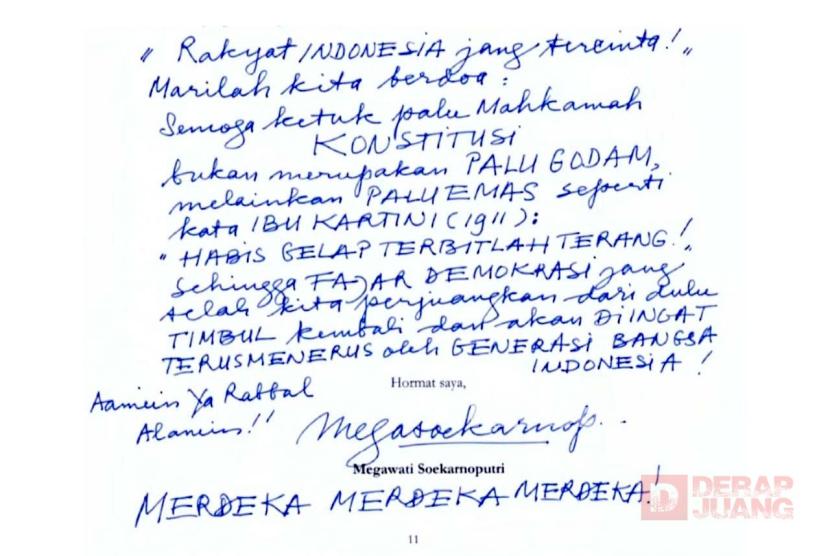 " Rakyat INDONESIA jang tercinta! "
Marilah kita berdoa :
Semoga ketuk palu Mahkamah
KONSTITUSI
bukan merupakan PALU GODAM,
melainkan PALU EMAS seperti
kata IBU KARTINI (1911) :
" HABIS GELAP TERBITLAH TERANG! "
Sehingga FAJAR DEMOKRASI jang
telah kita perjuangkan dari dulu
TIMBUL kembali dan akan DIINGAT
TERUSMENERUS oleh GENERASI BANGSA
INDONESIA !
Hormat saya,
Aamiin Ya Rabbal
Alamin!!
Megasoekarnop.
Megawati Soekarnoputri
MERDEKA MERDEKA MERDEKA!
D DERAP
JUANG
11